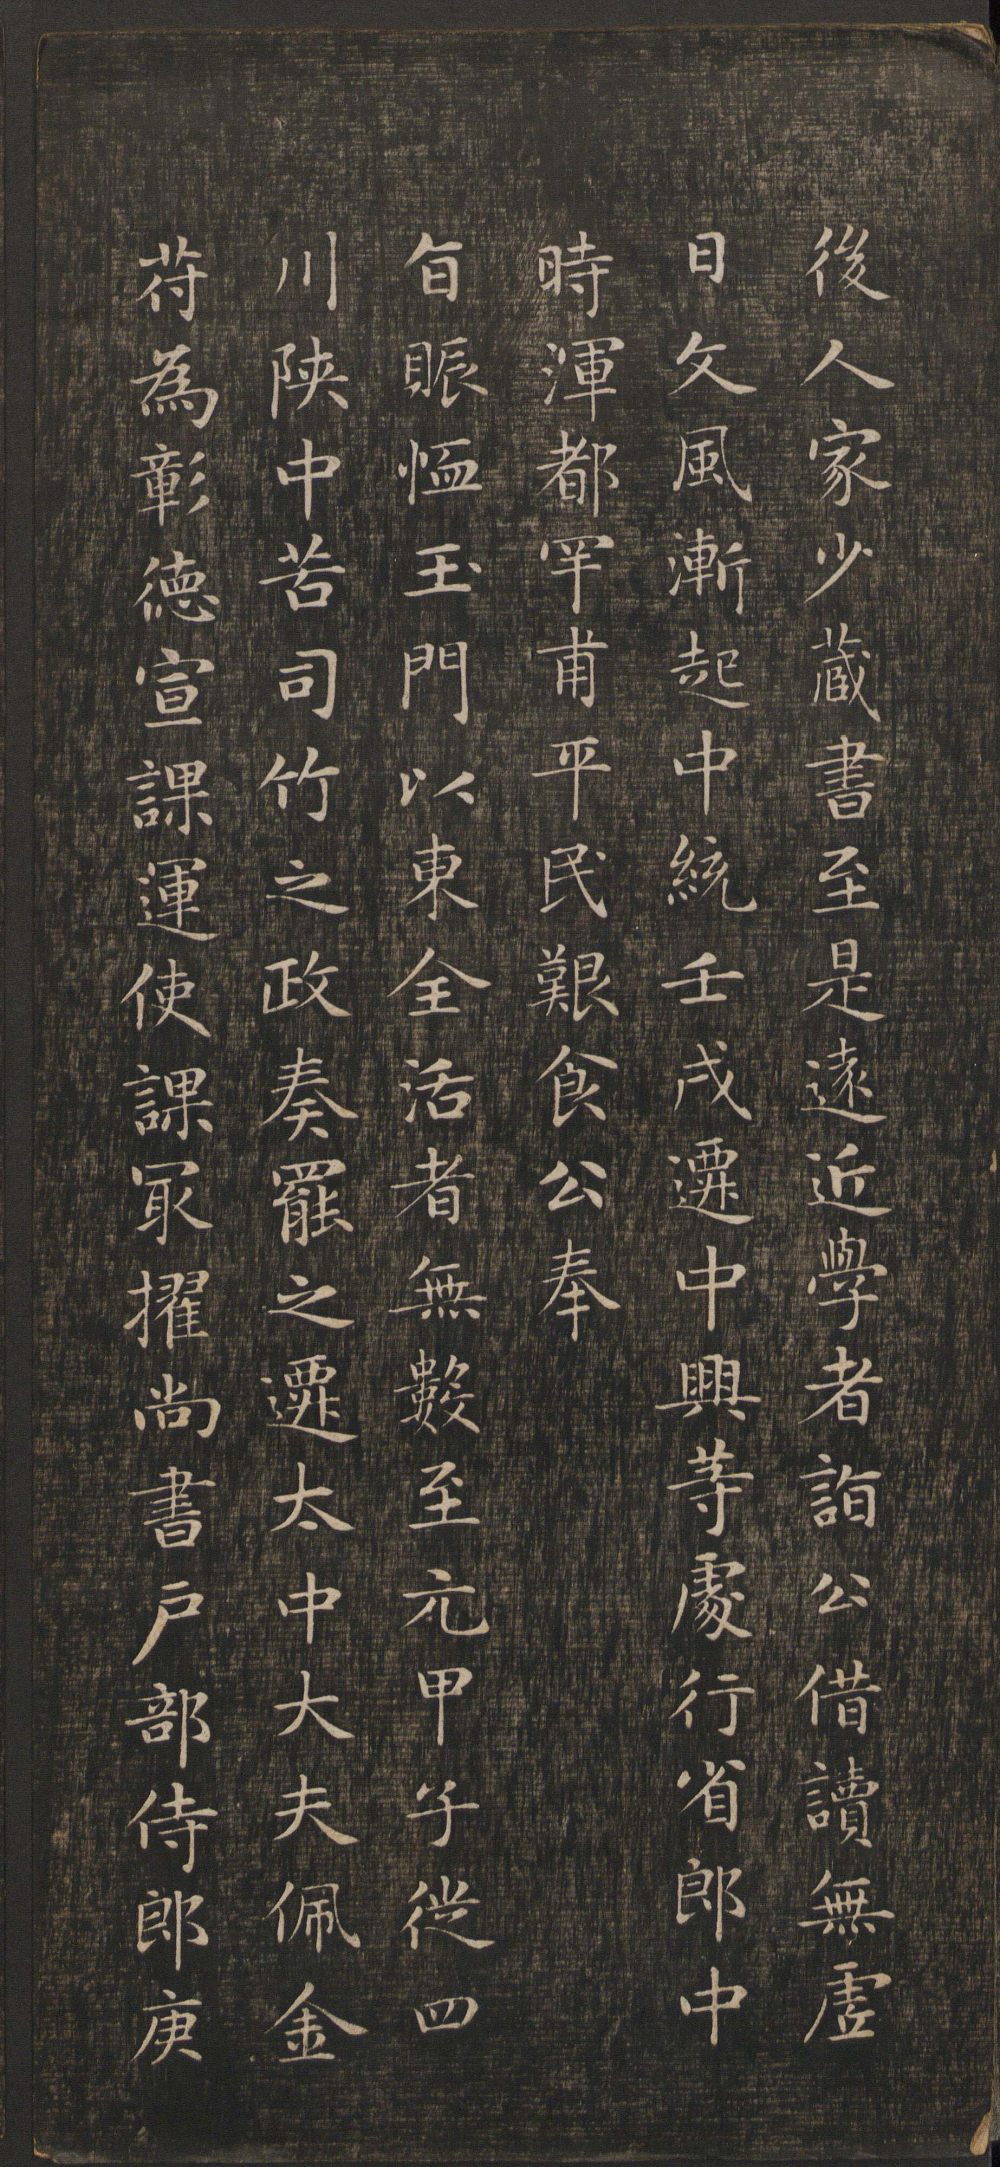 後人家少蔵書至是遠近學者詣公借讀無虚
日文風漸起中統壬戌遷中興等處行省郎中
時渾都罕甫平民艱食公奉
旨賑恤玉門以東全活者無數至元甲子従四
川陝中苦司竹之政奏罷之遷太中大夫佩金
苻為彰德宣課運使課冣擢尚書戸部侍郎庚